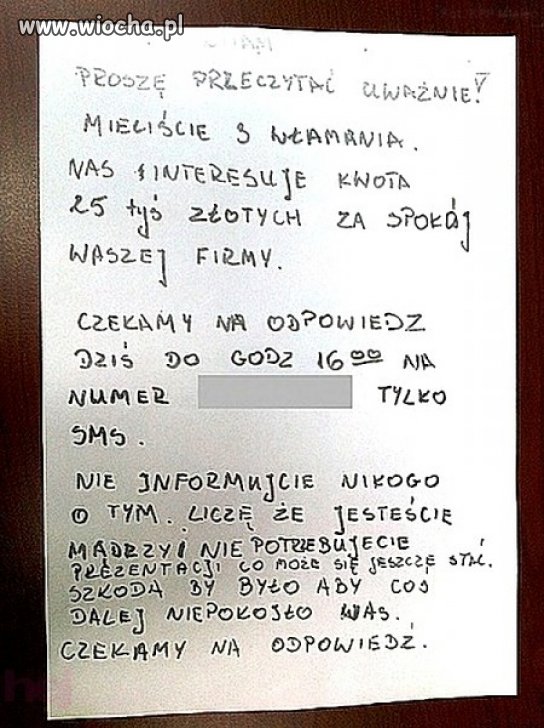 www.wiocha.pl
PROSZĘ PRZECZYTAĆ UWAŻNIE!
MIELIŚCIE 3 WŁAMANIA.
NAS INTERESUJE KWOTA
25 tyś ZŁOTYCH ZA SPOKÓJ
WASZEJ FIRMY.
CZEKAMY NA ODPOWIEDZ
DZIŚ DO GODZ 16 00 NA
NUMER TYLKO
SMS.
NIE INFORMUJCIE NIKOGO
O TYM. LICZĘ ŻE JESTEŚCIE
MĄDRZY I NIE POTRZEBUJECIE
PREZENTACJI CO MOŻE SIĘ JESZCZĘ STAĆ.
SZKODA BY BYŁO ABY COŚ
DALEJ NIEPOKOJŁO WAS.
CZEKAMY NA ODPOWIEDŹ.